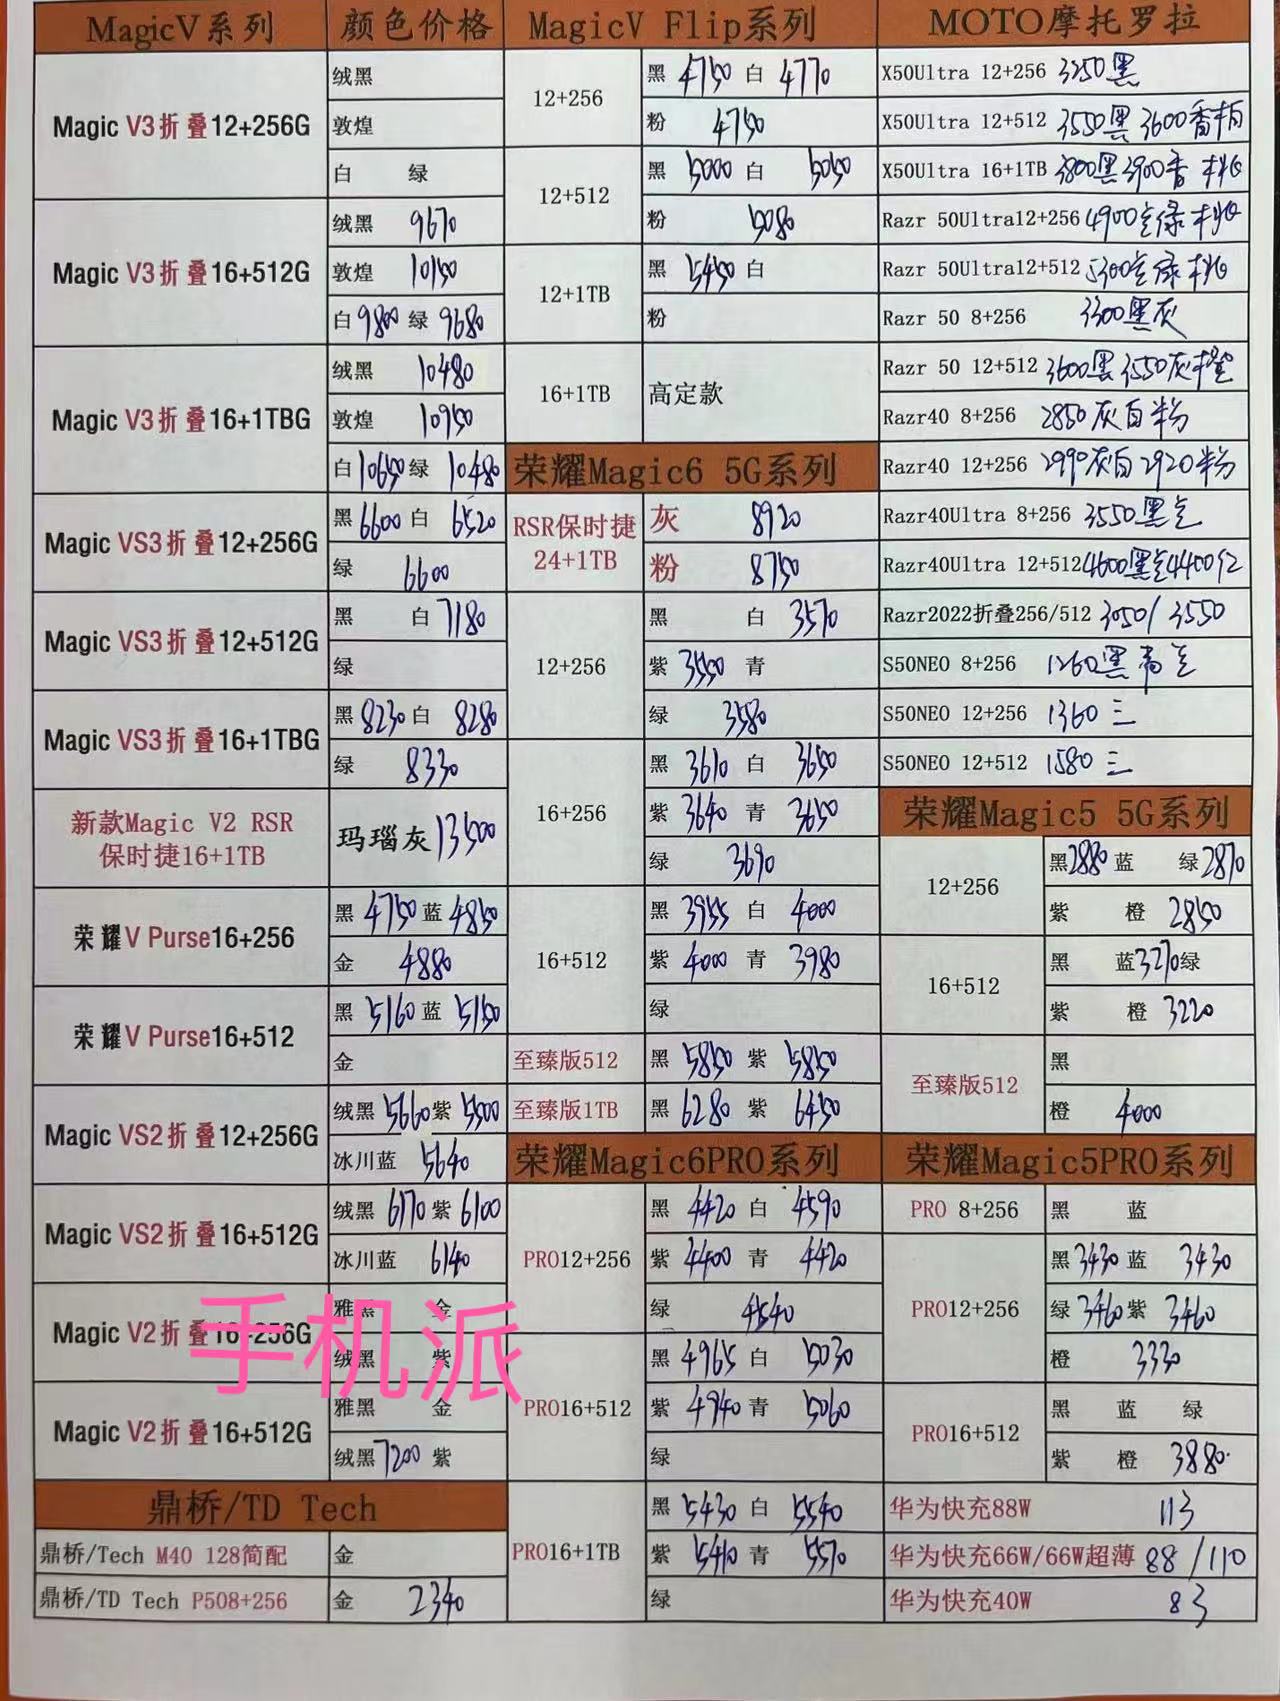 MagicV系列 颜色价格
Magic V3折叠12+256G 绒黑
敦煌
白 绿
Magic V3折叠16+512G 绒黑 9670
敦煌 10150
白 9800 绿 9680
Magic V3折叠16+1TBG 绒黑 10480
敦煌 10950
白 10650 绿 10480
Magic VS3折叠12+256G 黑 6600 白 6520
绿 6600
Magic VS3折叠12+512G 黑 白 7180
绿
Magic VS3折叠16+1TBG 黑 8230 白 8280
绿 8330
新款Magic V2 RSR
保时捷16+1TB 玛瑙灰 13500
荣耀V Purse16+256 黑 4750 蓝 4850
金 4880
荣耀V Purse16+512 黑 5160 蓝 5150
金
Magic VS2折叠12+256G 绒黑 5660 紫 5500
冰川蓝 5640
Magic VS2折叠16+512G 绒黑 6170 紫 6100
冰川蓝 6140
Magic V2折叠16+256G 雅黑 金
绒黑 紫
Magic V2折叠16+512G 雅黑 金
绒黑 7200 紫
鼎桥/TD Tech
鼎桥/Tech M40 128简配 金
鼎桥/TD Tech P508+256 金 2340
MagicV Flip系列
12+256 黑 4750 白 4770
粉 4750
12+512 黑 5000 白 5050
粉 5080
12+1TB 黑 5450 白
粉
16+1TB 高定款
荣耀Magic6 5G系列
RSR保时捷
24+1TB 灰 8920
粉 8750
12+256 黑 白 3570
紫 3550 青
绿 3580
16+256 黑 3610 白 3650
紫 3640 青 3650
绿 3690
16+512 黑 3955 白 4000
紫 4000 青 3980
绿
至臻版512 黑 5850 紫 5850
至臻版1TB 黑 6280 紫 6450
荣耀Magic6PRO系列
PRO12+256 黑 4420 白 4590
紫 4400 青 4420
绿 4540
PRO16+512 黑 4965 白 5030
紫 4940 青 5060
绿
PRO16+1TB 黑 5430 白 5540
紫 5410 青 5570
绿
MOTO摩托罗拉
X50Ultra 12+256 3250黑
X50Ultra 12+512 3550黑 3600香柏
X50Ultra 16+1TB 3800黑 3900香 桃
Razr 50Ultra12+256 4900兰绿 桃
Razr 50Ultra12+512 5300兰绿 桃
Razr 50 8+256 3300黑灰
Razr 50 12+512 3600黑 3550灰橙
Razr40 8+256 2850灰白粉
Razr40 12+256 2990灰白 2920粉
Razr40Ultra 8+256 3550黑兰
Razr40Ultra 12+512 4600黑兰 4400红
Razr2022折叠256/512 3050/3550
S50NEO 8+256 1260黑青兰
S50NEO 12+256 1360 三
S50NEO 12+512 1580 三
荣耀Magic5 5G系列
12+256 黑 2880 蓝 绿 2870
紫 橙 2850
16+512 黑 蓝 3270 绿
紫 橙 3220
至臻版512 黑
橙 4000
荣耀Magic5PRO系列
PRO 8+256 黑 蓝
PRO12+256 黑 3430 蓝 3430
绿 3460 紫 3460
橙 3330
PRO16+512 黑 蓝 绿
紫 橙 3880
华为快充88W 113
华为快充66W/66W超薄 88/110
华为快充40W 83
手机派